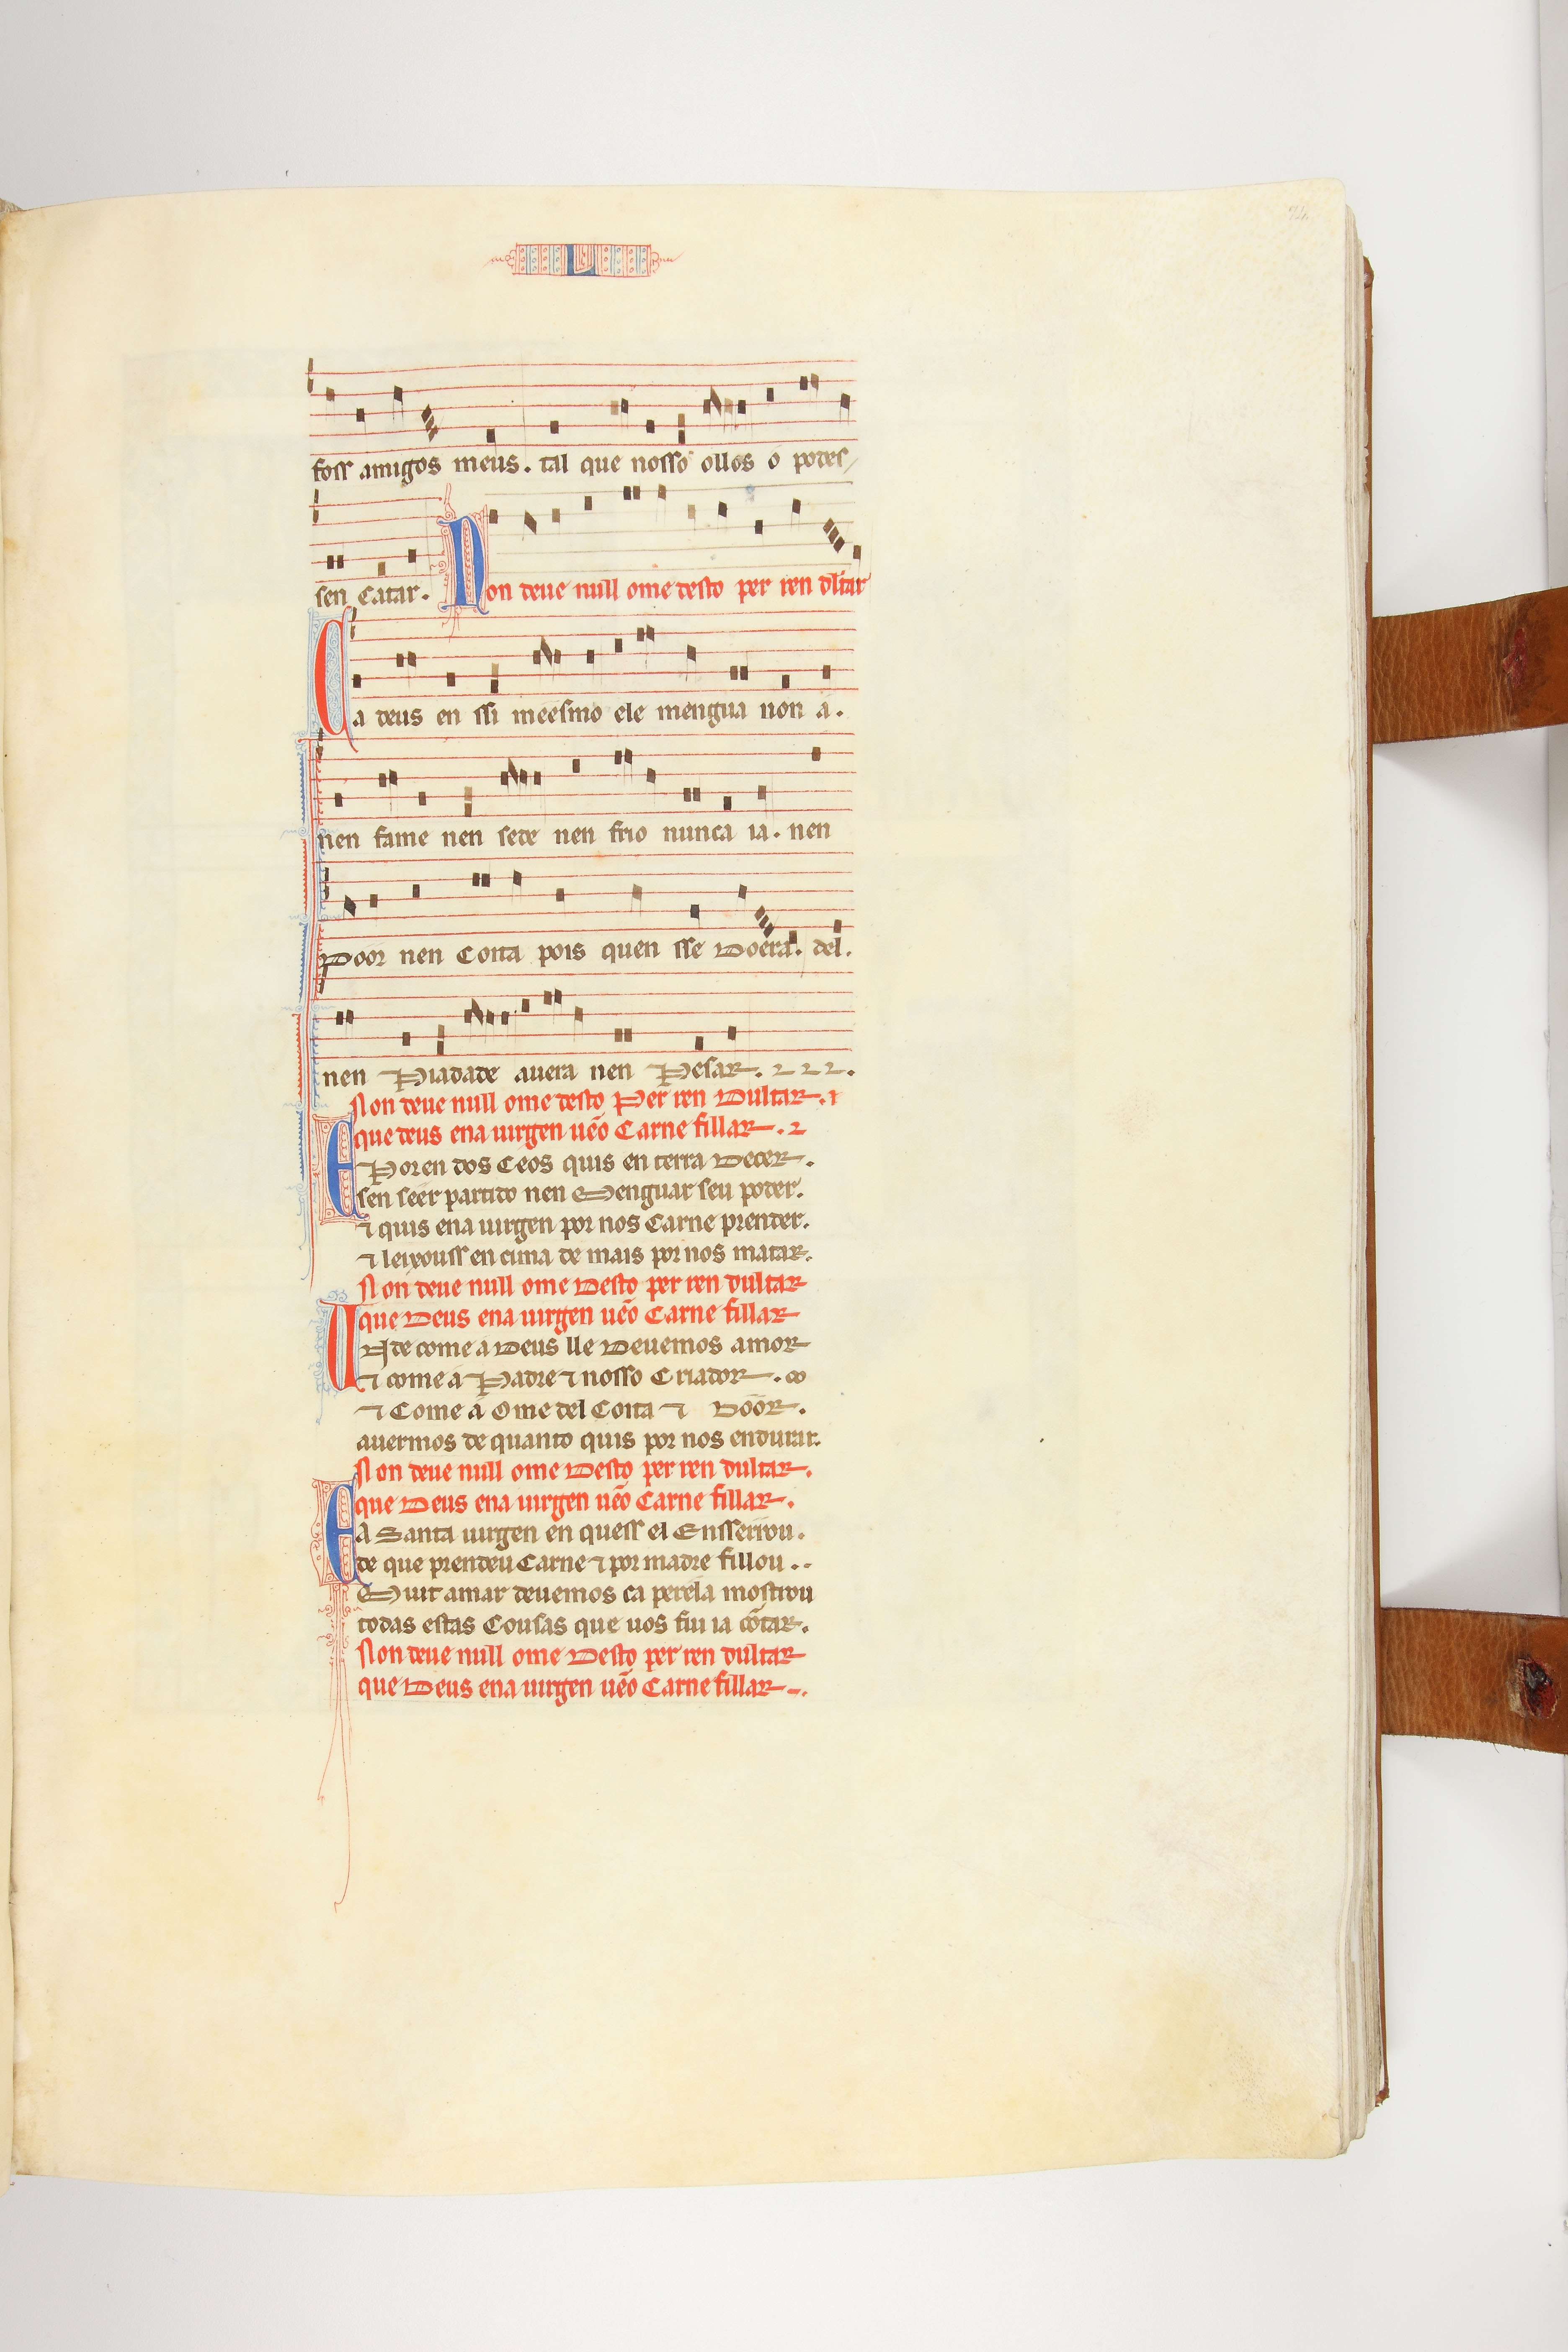 74
L
foss amigos meus. tal que nosso ollos o podes/
sen catar. Non deue null ome desto per ren dultar
Ca deus en ssi meesmo ele mengua non á.
nen fame nen sede nen frio nunca ia. nen
door nen coita pois quen sse doerá. del.
nen piadade auera nen pesar.
Non deue null ome desto per ren dultar.
que deus ena uirgen uẽo carne fillar.
E poren dos ceos quis en terra decer.
sen séer partido nen menguar seu poder.
⁊ quis ena uirgen por nos carne prender.
⁊ leixouss en cima de mais por nos matar.
Non deue null ome desto per ren dultar
que deus ena uirgen uẽo carne fillar
Unde come á deus lle deuemos amor
⁊ come á padre ⁊ nosso criador.
⁊ come á ome del coita ⁊ door.
auermos de quanto quis por nos endurar.
Non deue null ome desto per ren dultar.
que deus ena uirgen uẽo carne fillar.
E a santa uirgen en quess el ensserrou.
de que prendeu carne ⁊ por madre fillou..
muit amar deuemos ca per ela mostrou
todas estas cousas que uos fui ia cõtar.
Non deue null ome desto per ren dultar
que deus ena uirgen uẽo carne fillar.